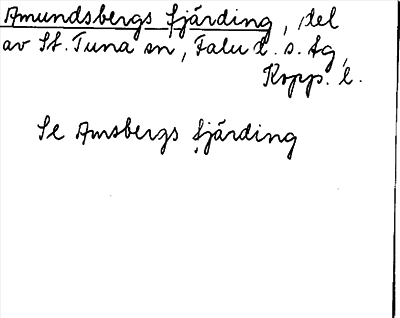 Amundsbergs fjärding, del
av St. Tuna sn, Falu d. s. tg,
Kopp. l.
Se Amsbergs fjärding